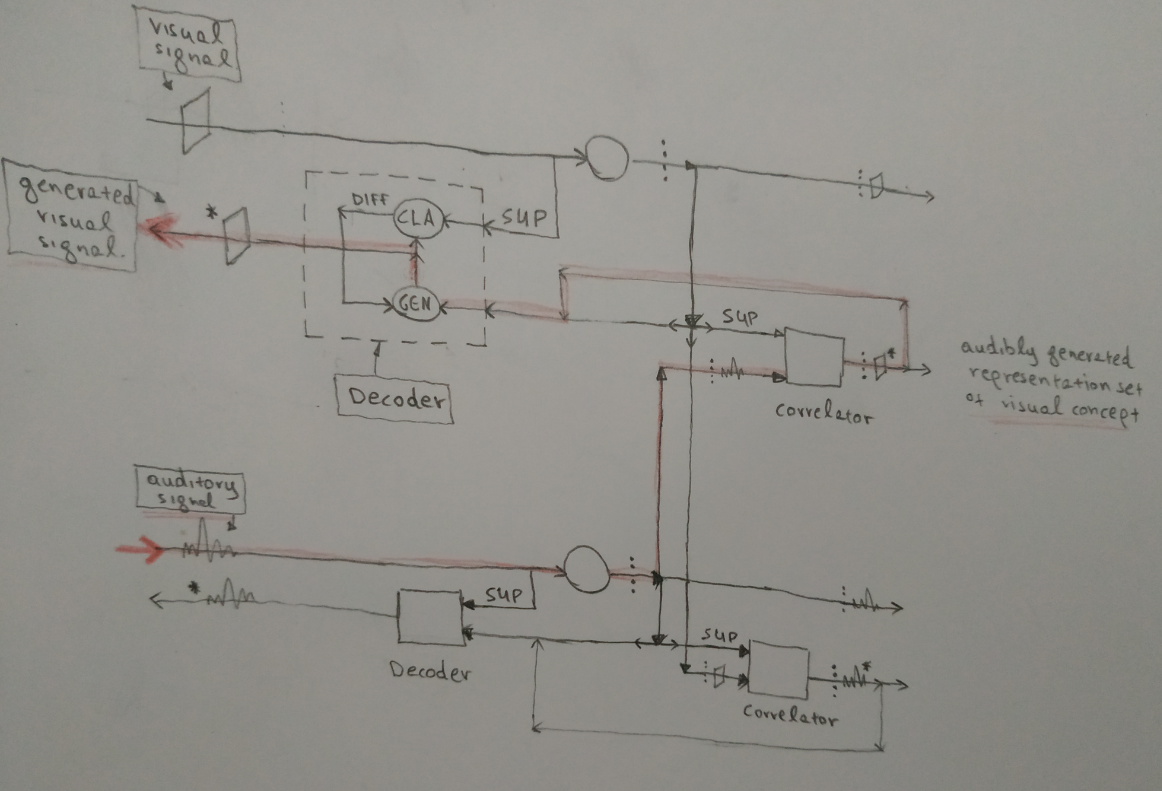 visual
signal
generated
visual
signal.
*
DIFF
CLA
SUP
GEN
Decoder
SUP
*
correlator
audibly generated
representation set
of visual concept
auditory
signal
*
SUP
Decoder
SUP
*
correlator